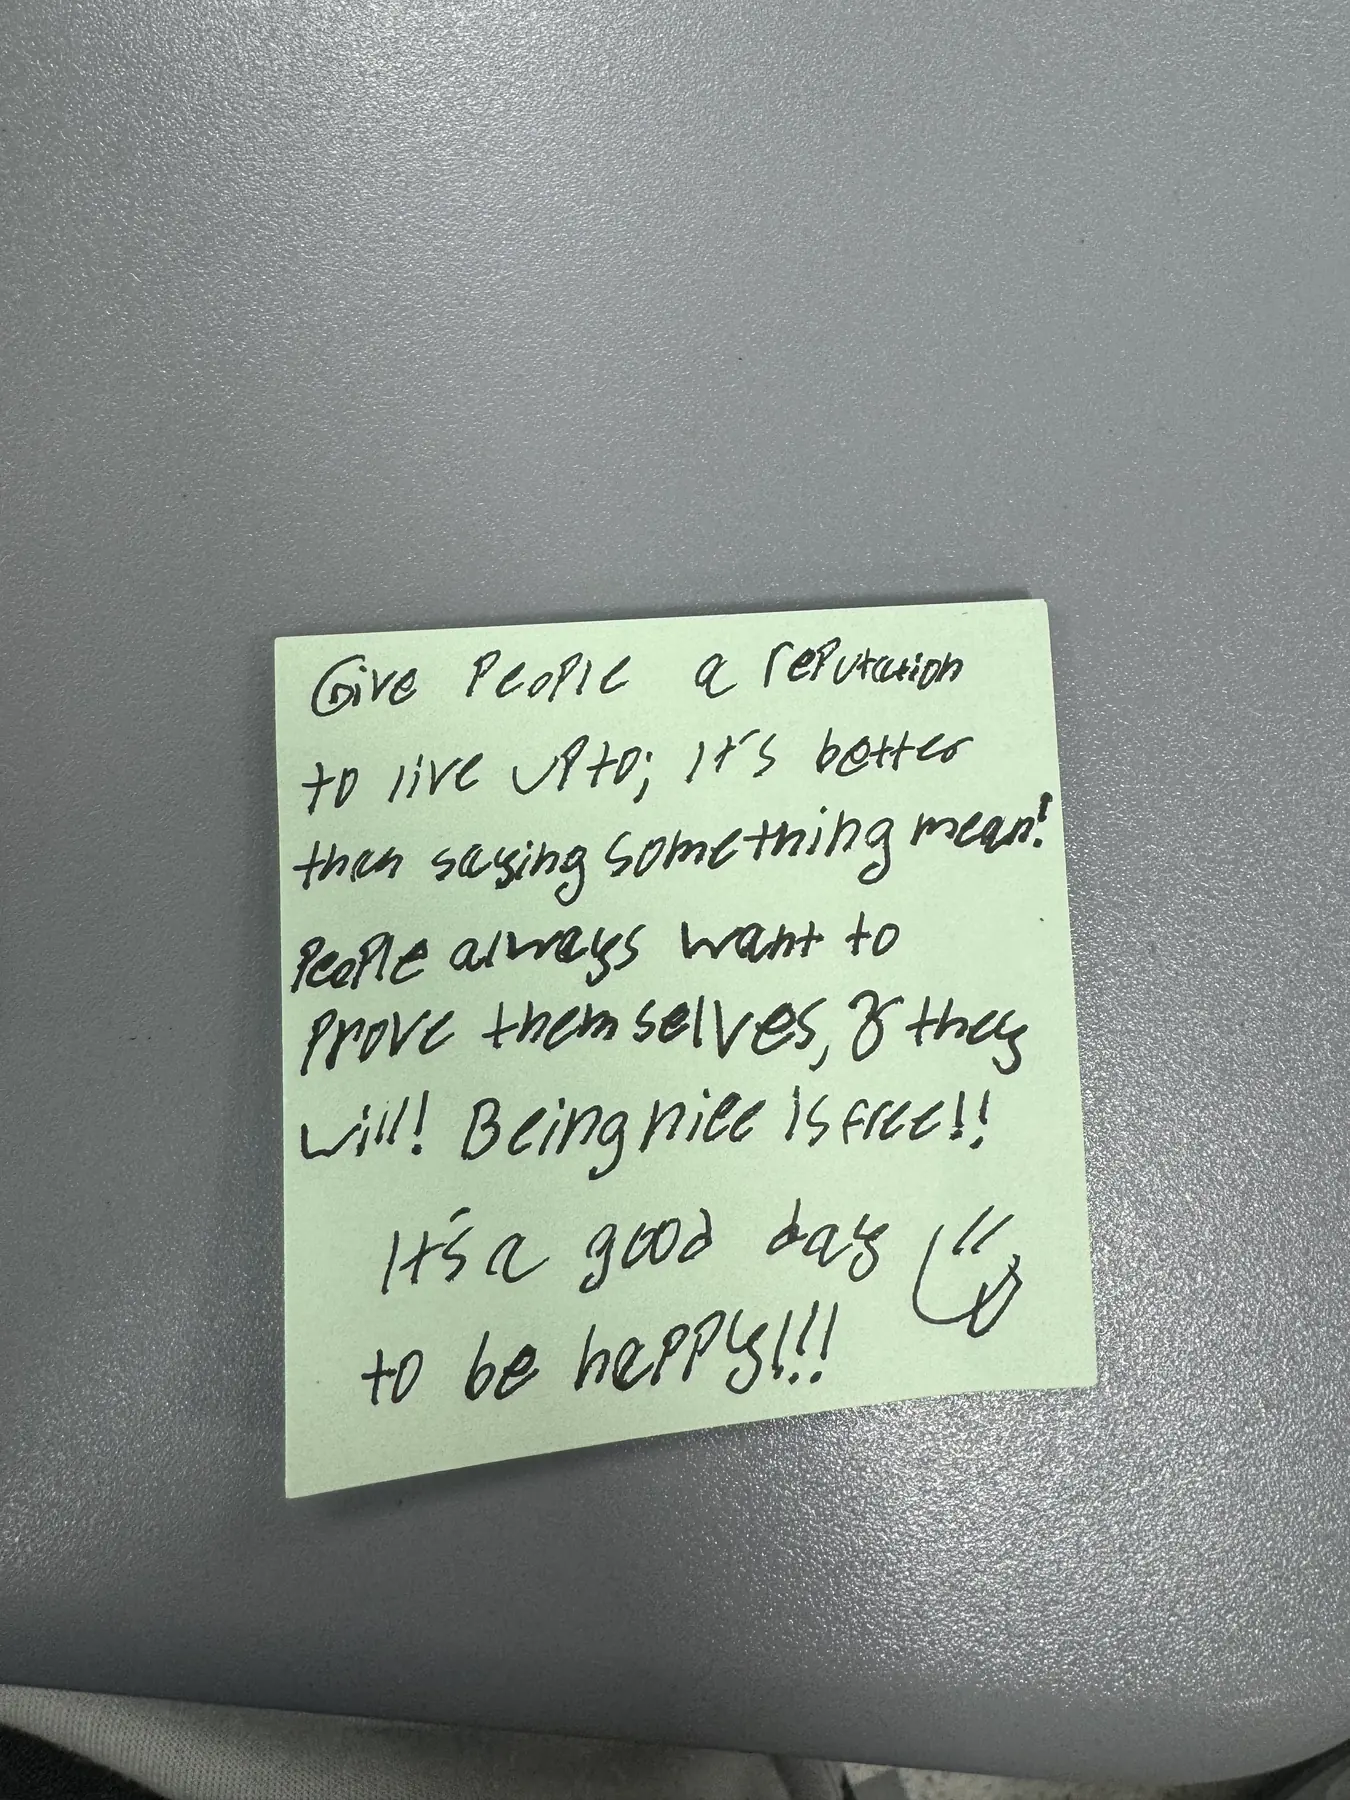 Give People a reputation
to live up to; It's better
than saying something mean!
People always want to
prove themselves, & they
will! Being nice is free!!
It's a good day
to be happy!!!